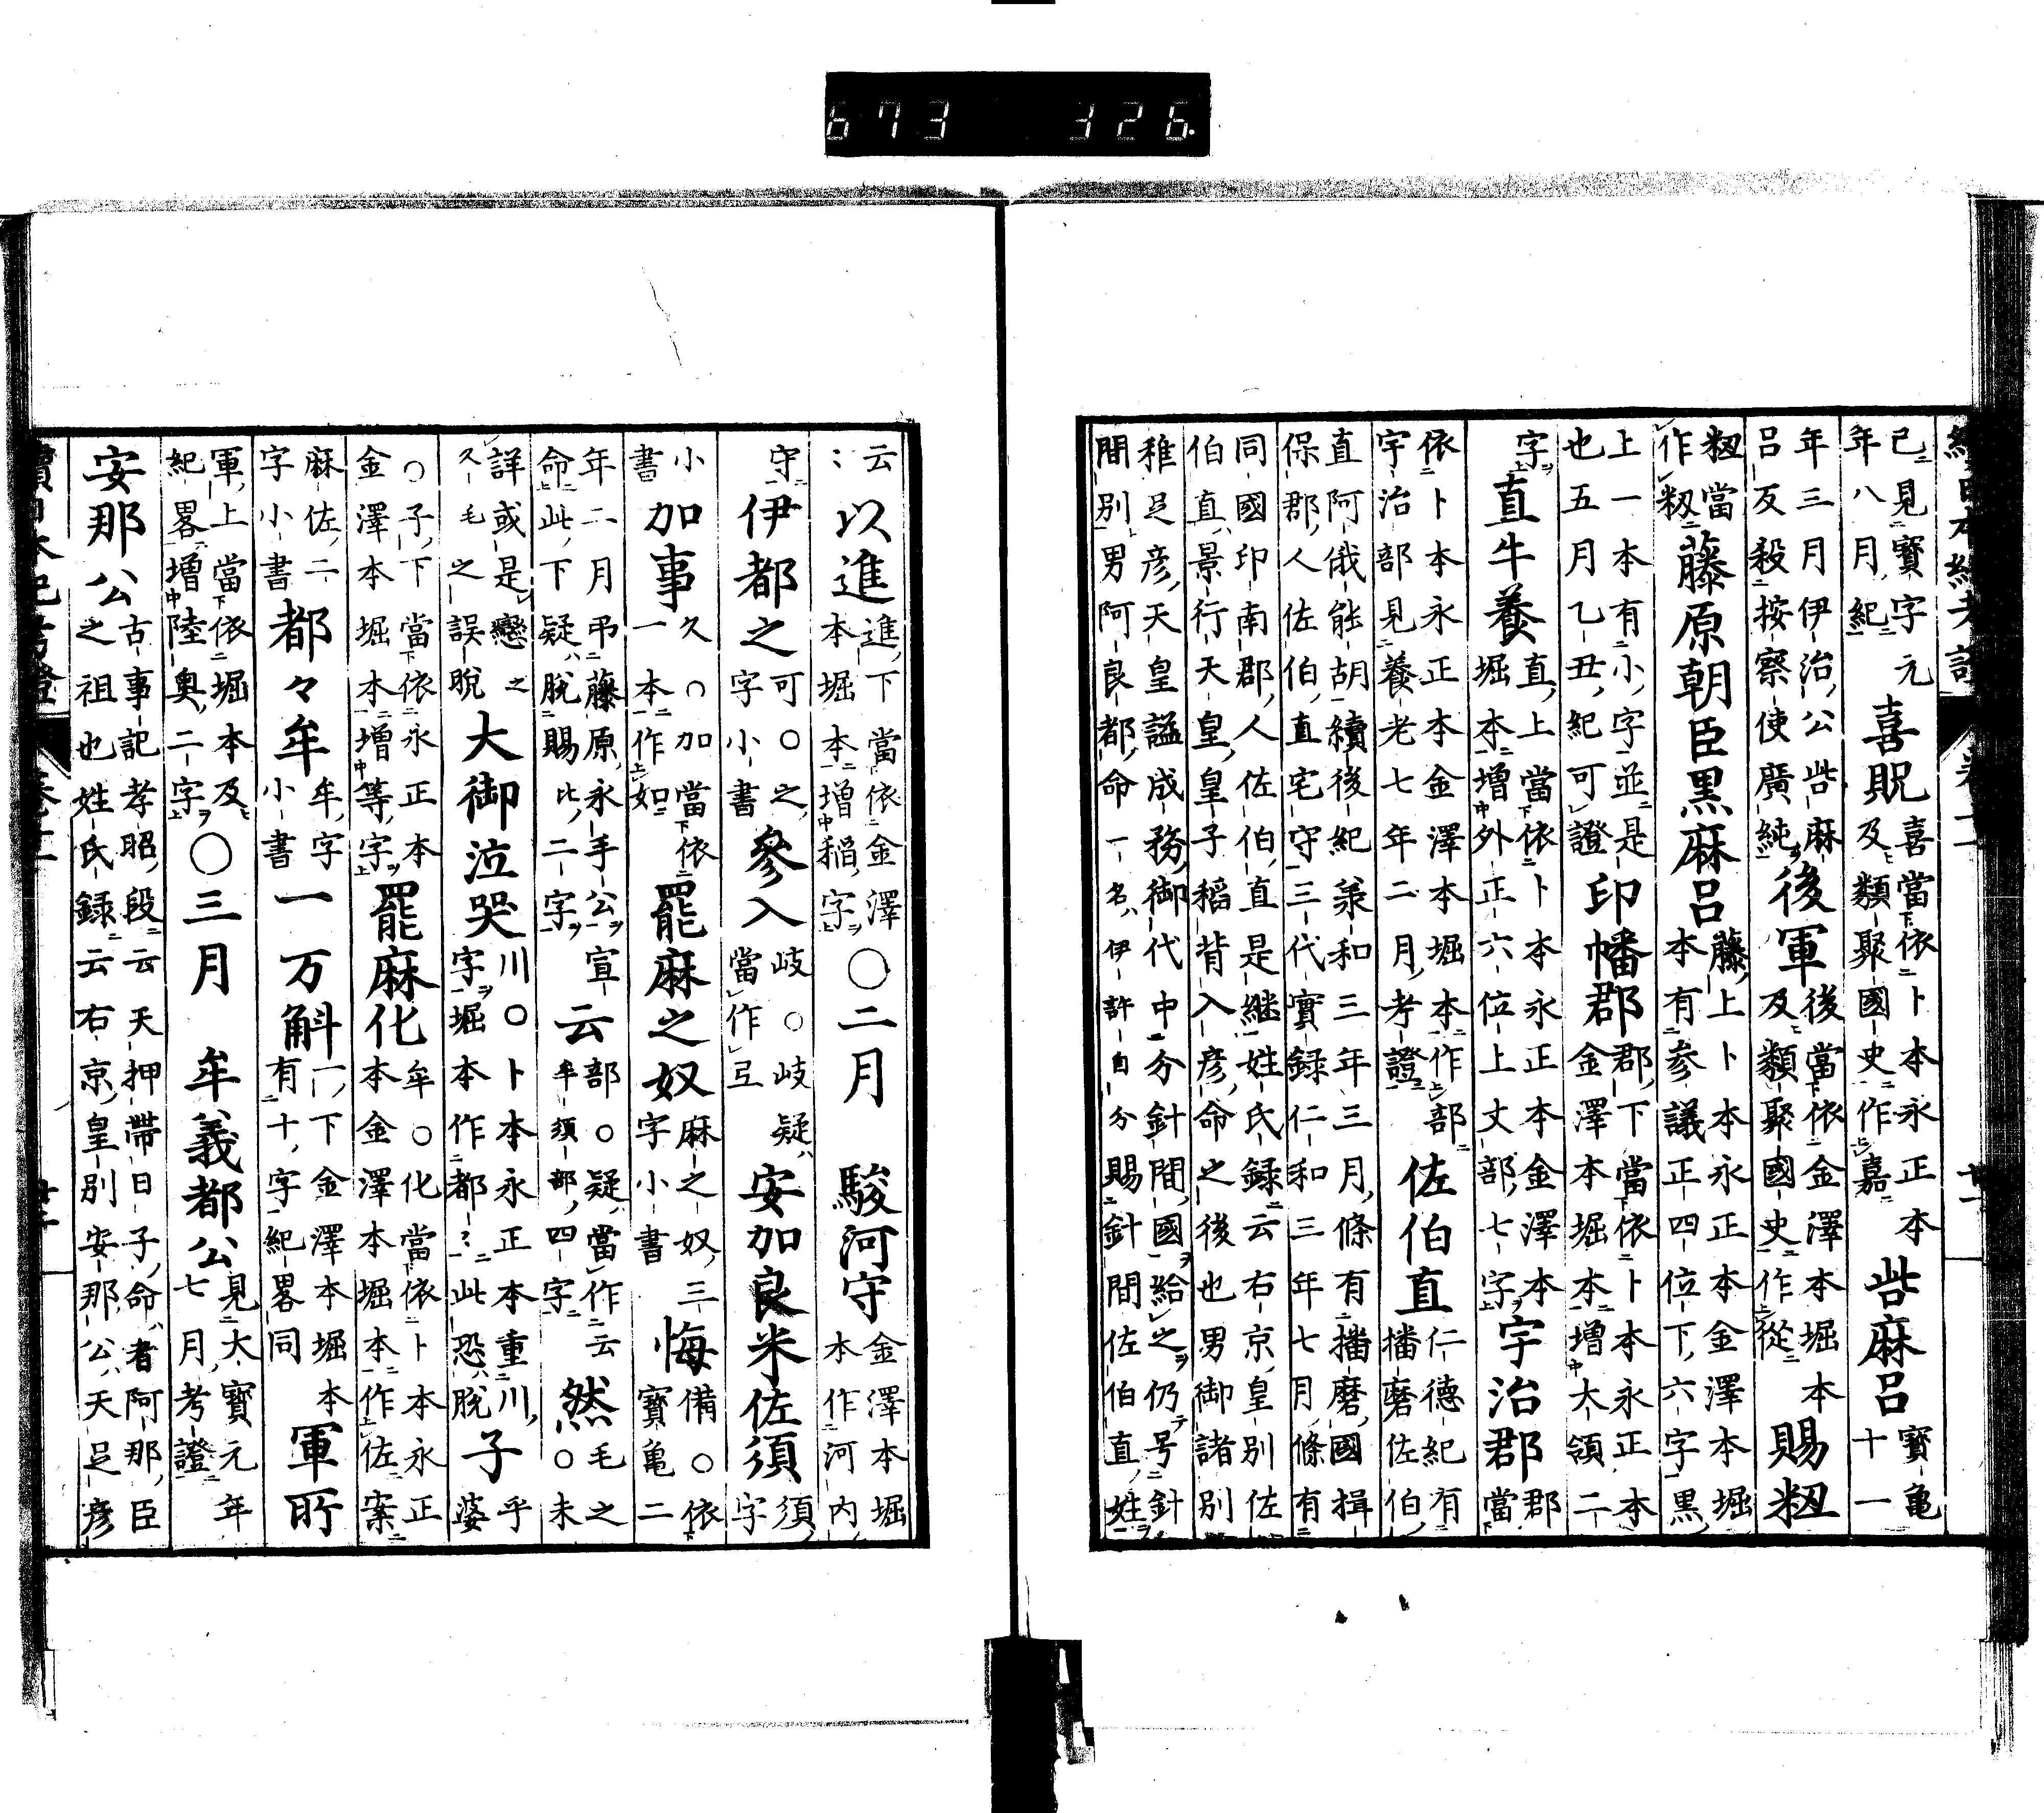 673 326.
已見寶字元
年八月紀 喜貺 喜當依卜本永正本
及類聚國史作嘉 呰麻呂 寶亀
十一
年三月伊治公呰麻
呂反殺按察使廣純 後軍 後當依金澤本堀本
及類聚國史作從 賜籾
籾當
作籾 藤原朝臣黒麻呂 藤上卜本永正本金澤本堀
本有参議正四位下六字黒
上一本有小字並是
也五月乙丑紀可證 印幡郡 郡下當依卜本永正本
金澤本堀本増大領二
字 直牛養 直上當依卜本永正本金澤本
堀本増外正六位上丈部七字 宇治郡 郡
當
依卜本永正本金澤本堀本作部
宇治部見養老七年二月考證 佐伯直 仁德紀有
播磨佐伯
直阿俄能胡續後紀兼和三年三月條有播磨國揖
保郡人佐伯直宅守三代實録仁和三年七月條有
同國印南郡人佐伯直是継姓氏録云右京皇別佐
伯直景行天皇皇子稻背入彦命之後也男御諸別
稚足彦天皇謚成務御代中分針間國給之仍号針
間別男阿良都命一名伊許自分賜針間佐伯直姓
云
〻 以進 進下當依金澤
本堀本増稲字 〇二月 駿河守 金澤本堀
本作河内
守 伊都之 可〇之
字小書 參入 岐〇岐疑
當作弖 安加良米佐須 須
字
小
書 加事 久〇加當依
一本作如 罷麻之奴 麻之奴三
字小書 悔 備〇依
寶亀二
年二月弔藤原永手公宣
命此下疑脫賜比二字 云 部〇疑當作云
牟須部四字 然 毛之
〇未
詳或是戀之
久毛之誤脫 大御泣哭 川〇卜本永正本重川
字堀本作都〻此恐脫 子 乎
婆
〇子下當依永正本
金澤本堀本増等字 罷麻佐 牟〇化當依卜本永正
本金澤本堀本作佐案
麻佐二
字小書 都々牟 牟字
小書 一万斛 一下金澤本堀本
有十字紀畧同 軍所
軍上當依堀本及
紀畧増陸奥二字 〇三月 牟義都公 見大寶元年
七月考證
安那公 古事記孝昭段云天押帶日子命者阿那臣
之祖也姓氏録云右京皇別安那公天足彦